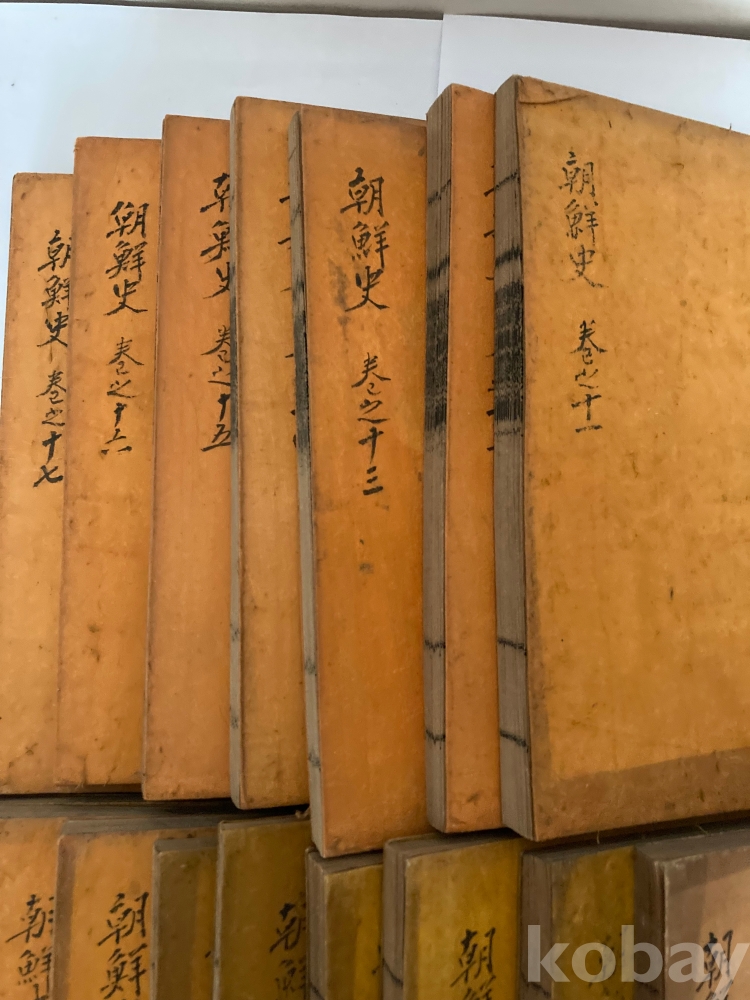 朝鮮史 卷之十一
朝鮮史 卷之十三
朝鮮史 卷之十五
朝鮮史 卷之十六
朝鮮史 卷之十七
朝
朝鮮
朝
朝鮮
朝鮮
kobay